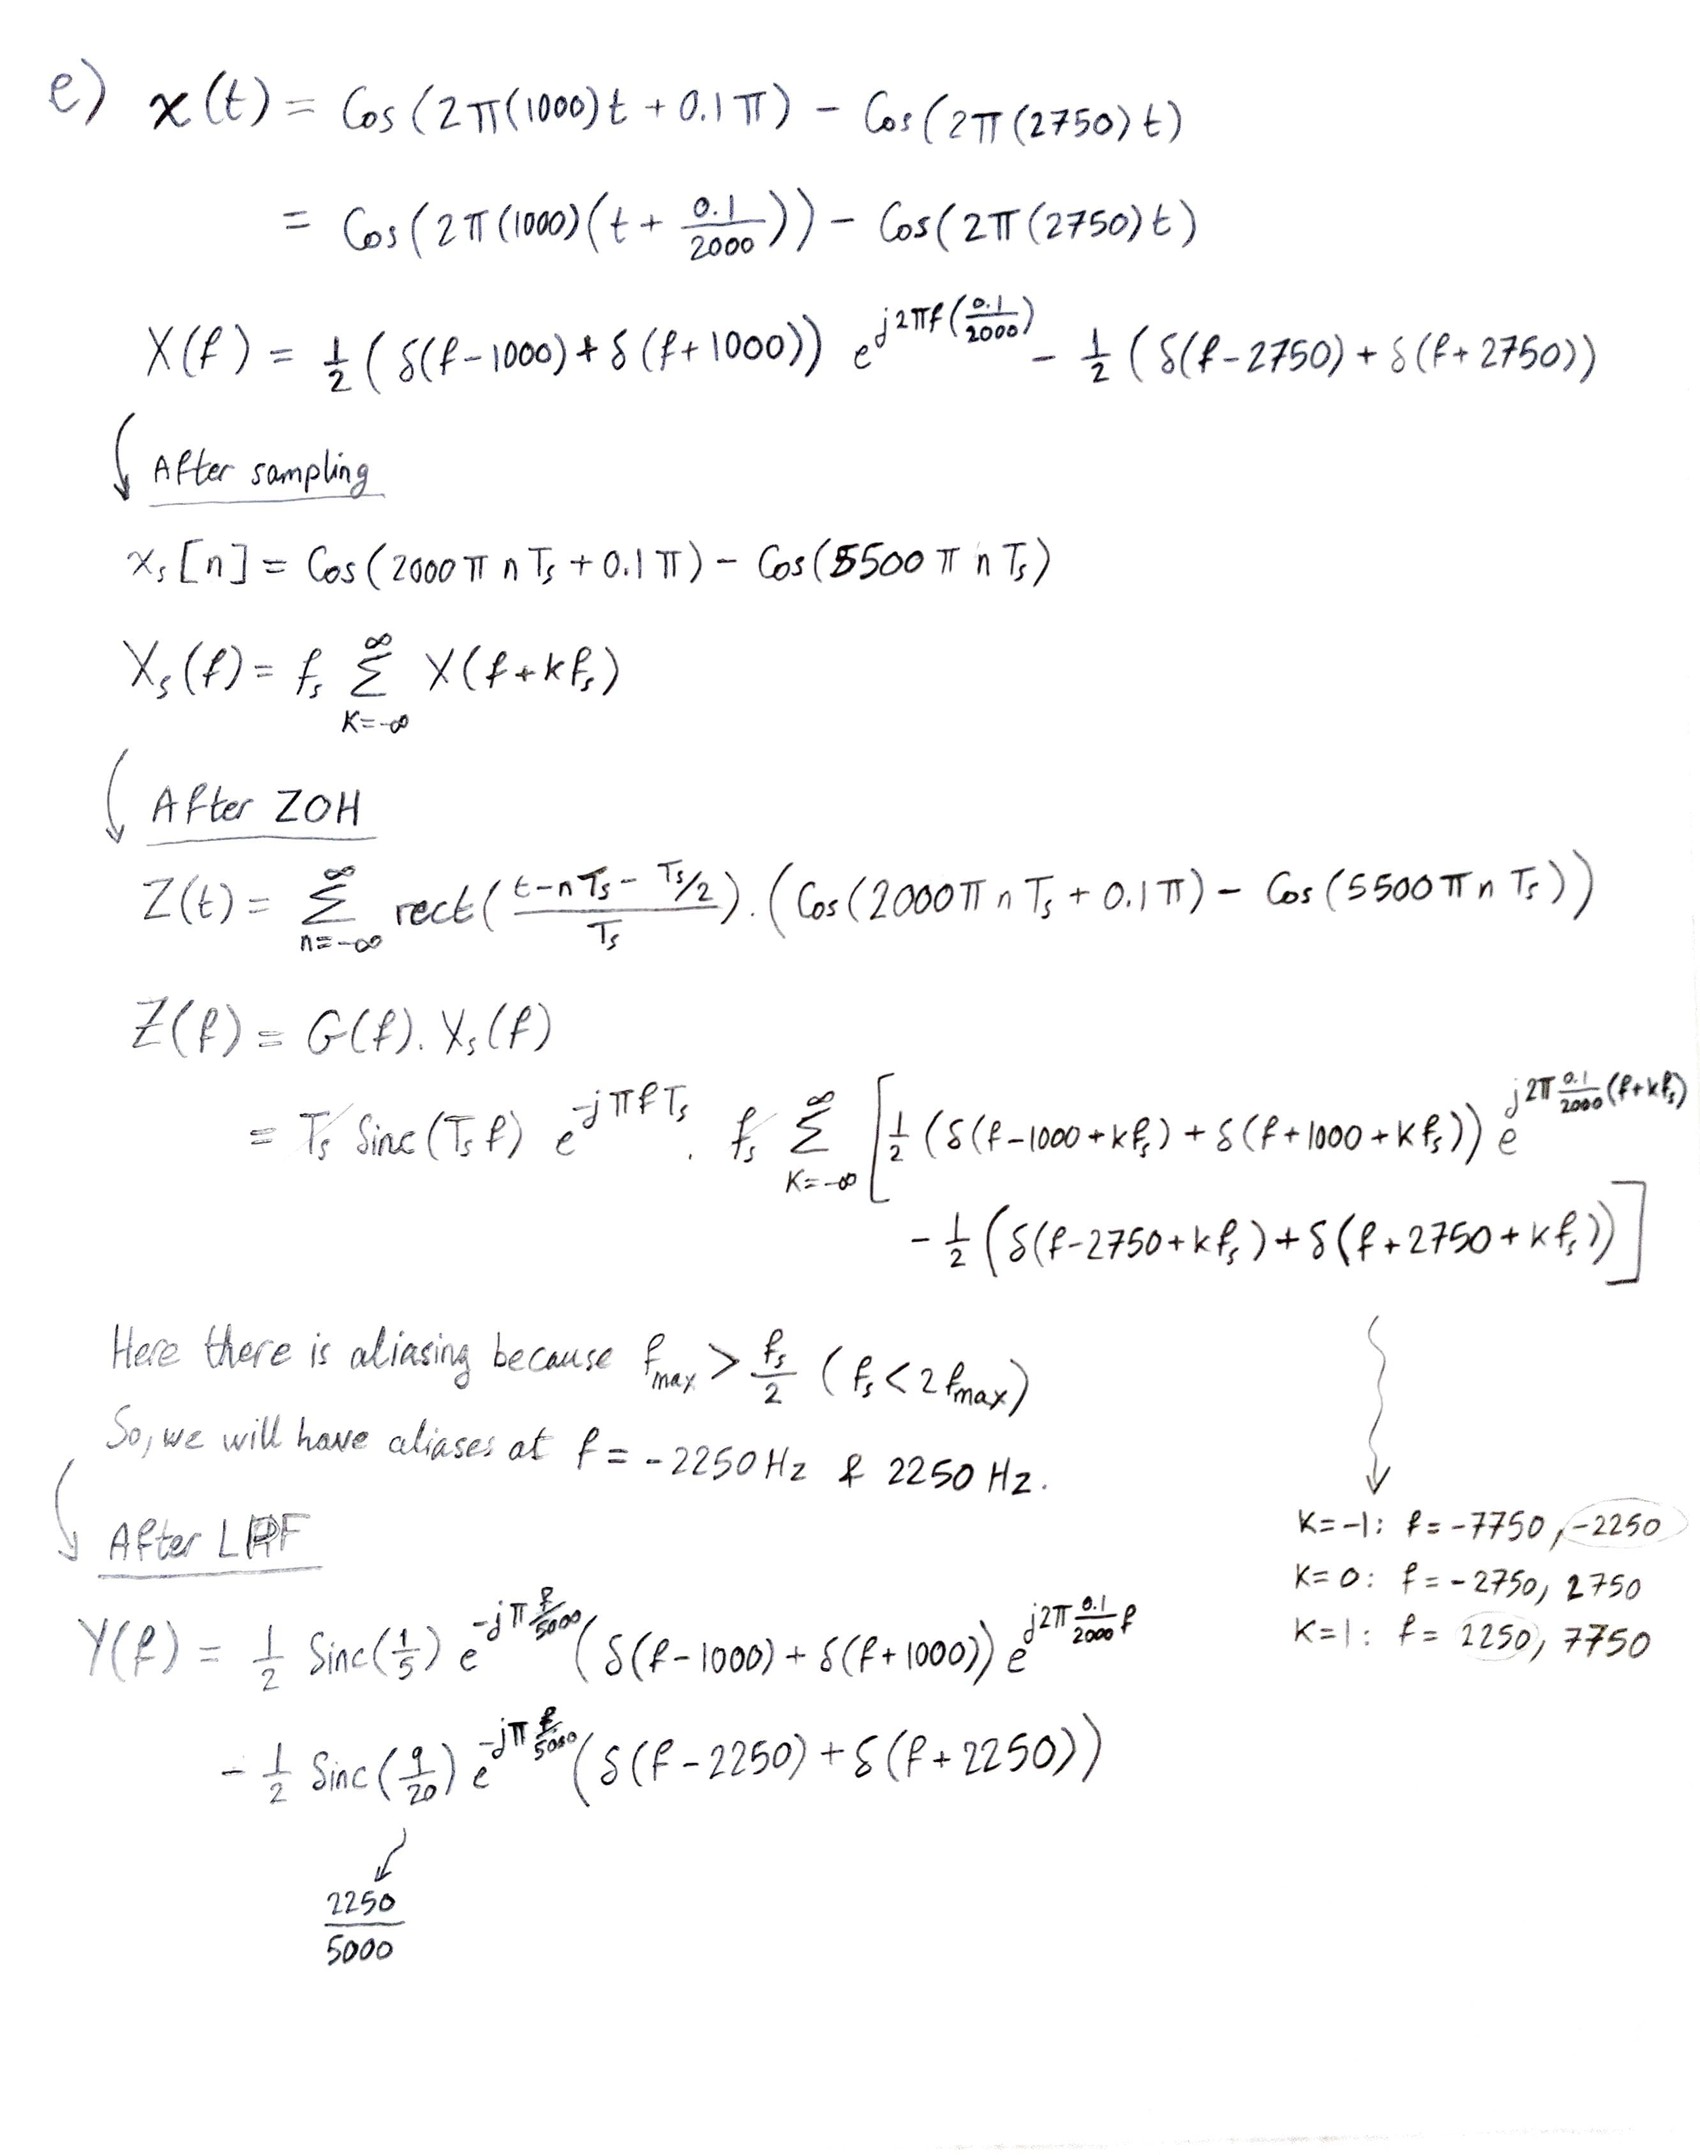 e) x(t) = Cos(2π(1000)t + 0.1π) - Cos(2π(2750)t)
= Cos(2π(1000)(t + 0.1/2000)) - Cos(2π(2750)t)
X(f) = 1/2 (δ(f-1000) + δ(f+1000)) e^{j2πf(0.1/2000)} - 1/2 (δ(f-2750) + δ(f+2750))
After sampling
x_s[n] = Cos(2000π n T_s + 0.1π) - Cos(5500π n T_s)
X_s(f) = f_s Σ_{K=-∞}^{∞} X(f+kf_s)
After ZOH
Z(t) = Σ_{n=-∞}^{∞} rect((t-nT_s - T_s/2)/T_s) . (Cos(2000π n T_s + 0.1π) - Cos(5500π n T_s))
Z(f) = G(f). X_s(f)
= T_s Sinc(T_s f) e^{-jπfT_s} . f_s Σ_{K=-∞}^{∞} [1/2 (δ(f-1000+kf_s) + δ(f+1000+kf_s)) e^{j2π 0.1/2000 (f+kf_s)}
- 1/2 (δ(f-2750+kf_s) + δ(f+2750+kf_s))]
Here there is aliasing because f_max > f_s/2 (f_s < 2f_max)
So, we will have aliases at f = -2250 Hz & 2250 Hz.
K=-1: f = -7750, -2250
K=0: f = -2750, 2750
K=1: f = 2250, 7750
After LPF
Y(f) = 1/2 Sinc(1/5) e^{-jπ f/5000} (δ(f-1000) + δ(f+1000)) e^{j2π 0.1/2000 f}
- 1/2 Sinc(9/20) e^{-jπ f/5000} (δ(f-2250) + δ(f+2250))
2250/5000